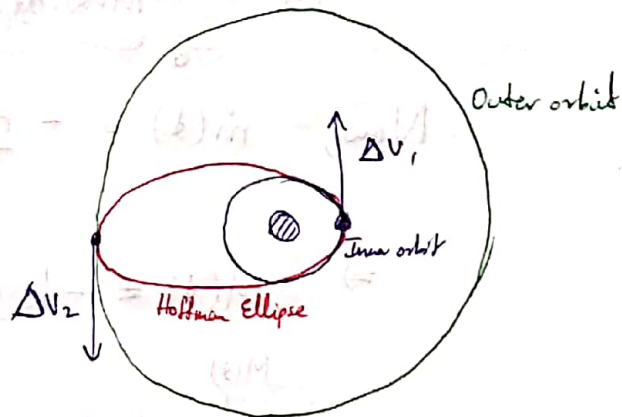 Outer orbit
ΔV₁
Inner orbit
ΔV₂
Hoffman Ellipse